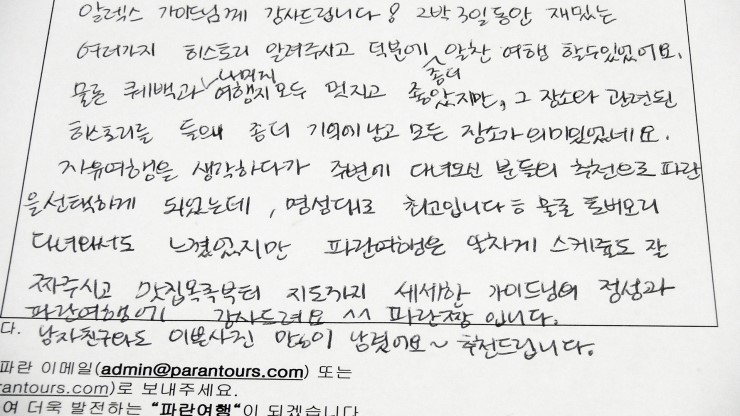 알렉스 가이드님께 감사드립니다 ㅎ 2박 3일동안 재밌는
여러가지 히스토리 알려주시고 덕분에 좀더 알찬 여행 할수있었어요.
물론 퀘백과 나머지 여행지 모두 멋지고 좋았지만, 그 장소와 관련된
히스토리를 들으니 좀더 기억에 남고 모든 장소가 의미있었네요.
자유여행을 생각하다가 주변에 다녀오신 분들의 추천으로 파란
을 선택하게 되었는데, 명성대로 최고입니다 ㅎ 물론 토버모리
다녀와서도 느꼈었지만 파란여행은 알차게 스케쥴도 잘
짜주시고 맛집목록부터 지도까지 세세한 가이드님의 정성과
파란여행에 감사드려요 ^^ 파란짱 입니다.
다. 남자친구와도 이쁜사진 많이 남겼어요~ 추천드립니다.
파란 이메일(admin@parantours.com) 또는
rantours.com)로 보내주세요.
여 더욱 발전하는 "파란여행"이 되겠습니다